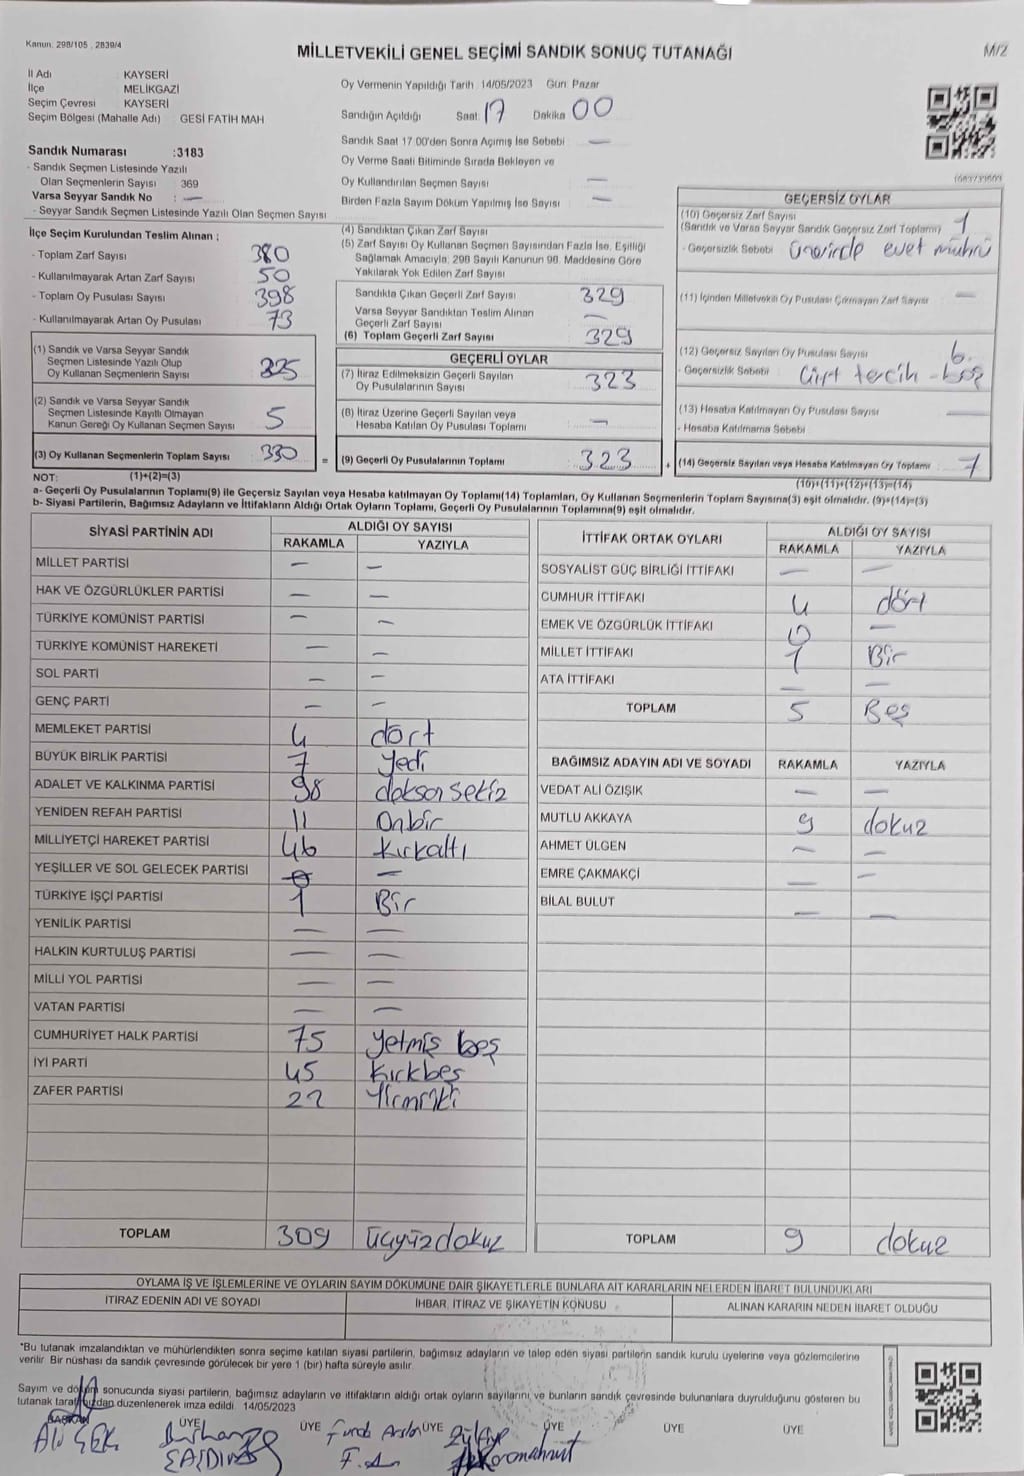 Kanun. 298/105 , 2839/4
MİLLETVEKİLİ GENEL SEÇİMİ SANDIK SONUÇ TUTANAĞI
M/2
İl Adı KAYSERİ
İlçe MELİKGAZİ
Seçim Çevresi KAYSERİ
Seçim Bölgesi (Mahalle Adı) GESİ FATİH MAH
Sandık Numarası :3183
- Sandık Seçmen Listesinde Yazılı
Olan Seçmenlerin Sayısı 369
Varsa Seyyar Sandık No : —
- Seyyar Sandık Seçmen Listesinde Yazılı Olan Seçmen Sayısı
Oy Vermenin Yapıldığı Tarih 14/05/2023 Gün: Pazar
Sandığın Açıldığı Saat 17 Dakika 00
Sandık Saat 17:00'den Sonra Açımış İse Sebebi —
Oy Verme Saati Bitiminde Sırada Bekleyen ve
Oy Kullandırılan Seçmen Sayısı —
Birden Fazla Sayım Döküm Yapılmış İse Sayısı —
İlçe Seçim Kurulundan Teslim Alınan ;
- Toplam Zarf Sayısı 380
- Kullanılmayarak Artan Zarf Sayısı 50
- Toplam Oy Pusulası Sayısı 398
- Kullanılmayarak Artan Oy Pusulası 73
(1) Sandık ve Varsa Seyyar Sandık
Seçmen Listesinde Yazılı Olup
Oy Kullanan Seçmenlerin Sayısı 325
(2) Sandık ve Varsa Seyyar Sandık
Seçmen Listesinde Kayıtlı Olmayan
Kanun Gereği Oy Kullanan Seçmen Sayısı 5
(3) Oy Kullanan Seçmenlerin Toplam Sayısı 330
(4) Sandıktan Çıkan Zarf Sayısı
(5) Zarf Sayısı Oy Kullanan Seçmen Sayısından Fazla İse, Eşitliği
Sağlamak Amacıyla, 298 Sayılı Kanunun 98. Maddesine Göre
Yakılarak Yok Edilen Zarf Sayısı
Sandıkta Çıkan Geçerli Zarf Sayısı 329
Varsa Seyyar Sandıktan Teslim Alınan
Geçerli Zarf Sayısı —
(6) Toplam Geçerli Zarf Sayısı 329
GEÇERLİ OYLAR
(7) İtiraz Edilmeksizin Geçerli Sayılan
Oy Pusulalarının Sayısı 323
(8) İtiraz Üzerine Geçerli Sayılan veya
Hesaba Katılan Oy Pusulası Toplamı —
= (9) Geçerli Oy Pusulalarının Toplamı 323
GEÇERSİZ OYLAR
(10) Geçersiz Zarf Sayısı
(Sandık ve Varsa Seyyar Sandık Geçersiz Zarf Toplamı) 1
- Geçersizlik Sebebi Üzerinde evet mührü
(11) İçinden Milletvekili Oy Pusulası Çıkmayan Zarf Sayısı —
(12) Geçersiz Sayılan Oy Pusulası Sayısı 6
- Geçersizlik Sebebi Çift tercih - boş
(13) Hesaba Katılmayan Oy Pusulası Sayısı —
- Hesaba Katılmama Sebebi
+ (14) Geçersiz Sayılan veya Hesaba Katılmayan Oy Toplamı 7
NOT: (1)+(2)=(3) (10)+(11)+(12)+(13)=(14)
a- Geçerli Oy Pusulalarının Toplamı(9) ile Geçersiz Sayılan veya Hesaba katılmayan Oy Toplamı(14) Toplamları, Oy Kullanan Seçmenlerin Toplam Sayısına(3) eşit olmalıdır. (9)+(14)=(3)
b- Siyasi Partilerin, Bağımsız Adayların ve İttifakların Aldığı Ortak Oyların Toplamı, Geçerli Oy Pusulalarının Toplamına(9) eşit olmalıdır.
SİYASİ PARTİNİN ADI ALDIĞI OY SAYISI
RAKAMLA YAZIYLA
MİLLET PARTİSİ — —
HAK VE ÖZGÜRLÜKLER PARTİSİ — —
TÜRKİYE KOMÜNİST PARTİSİ — —
TÜRKİYE KOMÜNİST HAREKETİ — —
SOL PARTİ — —
GENÇ PARTİ — —
MEMLEKET PARTİSİ 4 dört
BÜYÜK BİRLİK PARTİSİ 7 Yedi
ADALET VE KALKINMA PARTİSİ 98 doksan sekiz
YENİDEN REFAH PARTİSİ 11 Onbir
MİLLİYETÇİ HAREKET PARTİSİ 46 Kırkaltı
YEŞİLLER VE SOL GELECEK PARTİSİ —
TÜRKİYE İŞÇİ PARTİSİ 1 Bir
YENİLİK PARTİSİ — —
HALKIN KURTULUŞ PARTİSİ — —
MİLLİ YOL PARTİSİ — —
VATAN PARTİSİ — —
CUMHURİYET HALK PARTİSİ 75 Yetmiş beş
İYİ PARTİ 45 Kırkbeş
ZAFER PARTİSİ 22 Yirmiiki
TOPLAM 309 üçyüzdokuz
İTTİFAK ORTAK OYLARI ALDIĞI OY SAYISI
RAKAMLA YAZIYLA
SOSYALİST GÜÇ BİRLİĞİ İTTİFAKI — —
CUMHUR İTTİFAKI 4 dört
EMEK VE ÖZGÜRLÜK İTTİFAKI —
MİLLET İTTİFAKI 1 Bir
ATA İTTİFAKI — —
TOPLAM 5 Beş
BAĞIMSIZ ADAYIN ADI VE SOYADI RAKAMLA YAZIYLA
VEDAT ALİ ÖZIŞIK — —
MUTLU AKKAYA 9 dokuz
AHMET ÜLGEN — —
EMRE ÇAKMAKÇİ — —
BİLAL BULUT — —
TOPLAM 9 dokuz
OYLAMA İŞ VE İŞLEMLERİNE VE OYLARIN SAYIM DÖKÜMÜNE DAİR ŞİKAYETLERLE BUNLARA AİT KARARLARIN NELERDEN İBARET BULUNDUKLARI
İTİRAZ EDENİN ADI VE SOYADI İHBAR, İTİRAZ VE ŞİKAYETİN KONUSU ALINAN KARARIN NEDEN İBARET OLDUĞU
*Bu tutanak imzalandıktan ve mühürlendikten sonra seçime katılan siyasi partilerin, bağımsız adayların ve talep eden siyasi partilerin sandık kurulu üyelerine veya gözlemcilerine
verilir. Bir nüshası da sandık çevresinde görülecek bir yere 1 (bir) hafta süreyle asılır.
Sayım ve döküm sonucunda siyasi partilerin, bağımsız adayların ve ittifakların aldığı ortak oyların sayılarını ve bunların sandık çevresinde bulunanlara duyrulduğunu gösteren bu
tutanak tarafımızdan düzenlenerek imza edildi. 14/05/2023
BAŞKAN ÜYE ÜYE ÜYE ÜYE ÜYE ÜYE